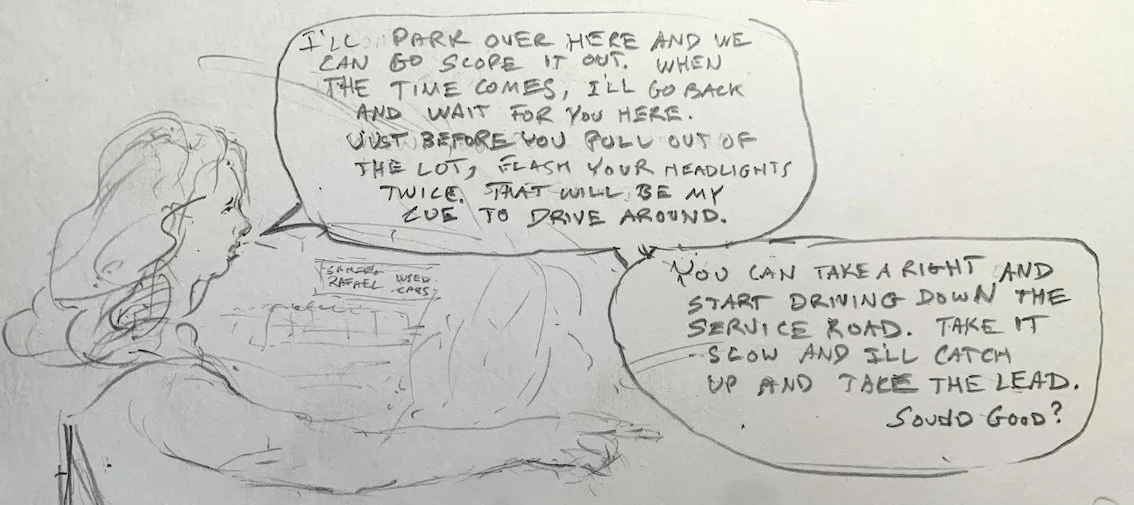 I'LL PARK OVER HERE AND WE
CAN GO SCOPE IT OUT. WHEN
THE TIME COMES, I'LL GO BACK
AND WAIT FOR YOU HERE.
JUST BEFORE YOU PULL OUT OF
THE LOT, FLASH YOUR HEADLIGHTS
TWICE. THAT WILL BE MY
CUE TO DRIVE AROUND.
YOU CAN TAKE A RIGHT AND
START DRIVING DOWN THE
SERVICE ROAD. TAKE IT
SLOW AND I'LL CATCH
UP AND TAKE THE LEAD.
SOUND GOOD?
RAFAEL USED
CARS